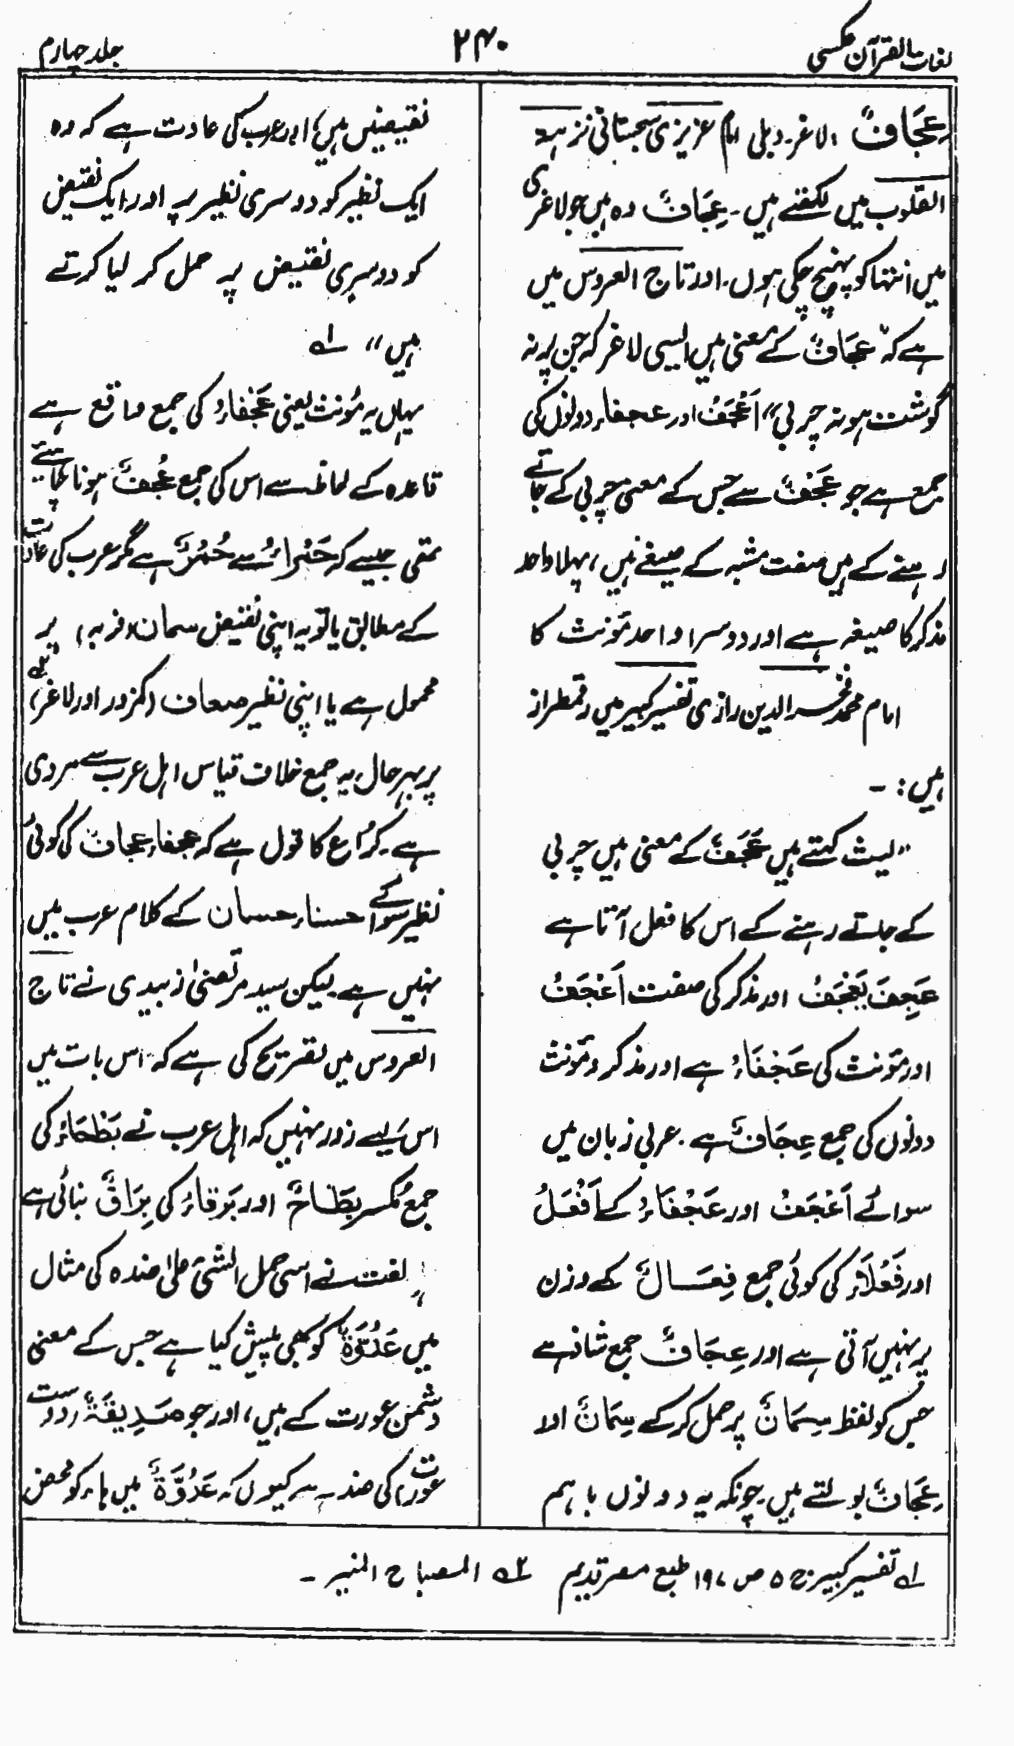 لغات القرآن عکسی
۲۴۰
جلد چہارم
عِجَافٌ، لاغر۔ دبلی امام عزیزی سجستانی نزہۃ
القلوب میں لکھتے ہیں۔ عِجَافٌ وہ ہیں جو لاغری
میں انتہا کو پہنچ چکی ہوں۔ اور تاج العروس میں
ہے کہ "عِجَافٌ کے معنی ہیں ایسی لاغر کہ جن پر نہ
گوشت ہو نہ چربی" اَعْجَفُ اور عجفاء دونوں کی
جمع ہے جو عَجَفٌ سے جس کے معنی چربی کے جاتے
رہنے کے ہیں صفت مشبہ کے صیغے ہیں، پہلا واحد
مذکر کا صیغہ ہے اور دوسرا واحد مؤنث کا
امام محمد فخر الدین رازی تفسیر کبیر میں رقمطراز
ہیں :۔
"لیث کہتے ہیں عَجَفٌ کے معنی ہیں چربی
کے جاتے رہنے کے اس کا فعل آتا ہے
عَجِفَ یَعْجَفُ اور مذکر کی صفت اَعْجَفُ
اور مؤنث کی عَجْفَاءُ ہے اور مذکر و مؤنث
دونوں کی جمع عِجَافٌ ہے۔ عربی زبان میں
سوائے اَعْجَفُ اور عَجْفَاءُ کے اَفْعَلُ
اور فَعْلَاءُ کی کوئی جمع فِعَالٌ کے وزن
پر نہیں آتی ہے اور عِجَافٌ جمع شاذ ہے
جس کو لفظ سِمَانٌ پر حمل کر کے سِمَانٌ اور
عِجَافٌ بولتے ہیں۔ چونکہ یہ دونوں باہم
نقیضیں ہیں، اور عرب کی عادت ہے کہ وہ
ایک نظیر کو دوسری نظیر پر اور ایک نقیض
کو دوسری نقیض پر حمل کر لیا کرتے
ہیں" ۱ے
یہاں یہ مؤنث یعنی عَجْفَاءُ کی جمع واقع ہے
قاعدہ کے لحاظ سے اس کی جمع عُجْفٌ ہونا چاہئے
تھی جیسے کہ حَمْرَاءُ سے حُمْرٌ ہے مگر عرب کی عادت
کے مطابق یا تو یہ اپنی نقیض سمان (فربہ) پر
محمول ہے یا اپنی نظیر ضعاف (کمزور اور لاغر) ۲ے
پر بہر حال یہ جمع خلاف قیاس اہل عرب سے مروی
ہے۔ کُرَاع کا قول ہے کہ عجفاء، عجافٌ کی کوئی
نظیر سوائے حسناء، حسان کے کلام عرب میں
نہیں ہے۔ لیکن سید مرتضیٰ زبیدی نے تاج
العروس میں تصریح کی ہے کہ اس بات میں
اس لیے زور نہیں کہ اہل عرب نے بَطْحَاءُ کی
جمع مُکسر بِطَاحٌ اور بَرْقَاءُ کی بِرَاقٌ بنائی ہے
لغت نے اسی حمل الشئ علیٰ ضدہ کی مثال
میں عَدُوَّۃٌ کو بھی پیش کیا ہے جس کے معنی
دشمن عورت کے ہیں، اور جو صَدِیقَۃٌ (دوست
عورت) کی ضد ہے کیوں کہ عَدُوَّۃٌ میں ہاء کو محض
۱ے تفسیر کبیر ج ۵ ص ۱۹۷ طبع مصر قدیم ۲ے المصباح المنیر۔